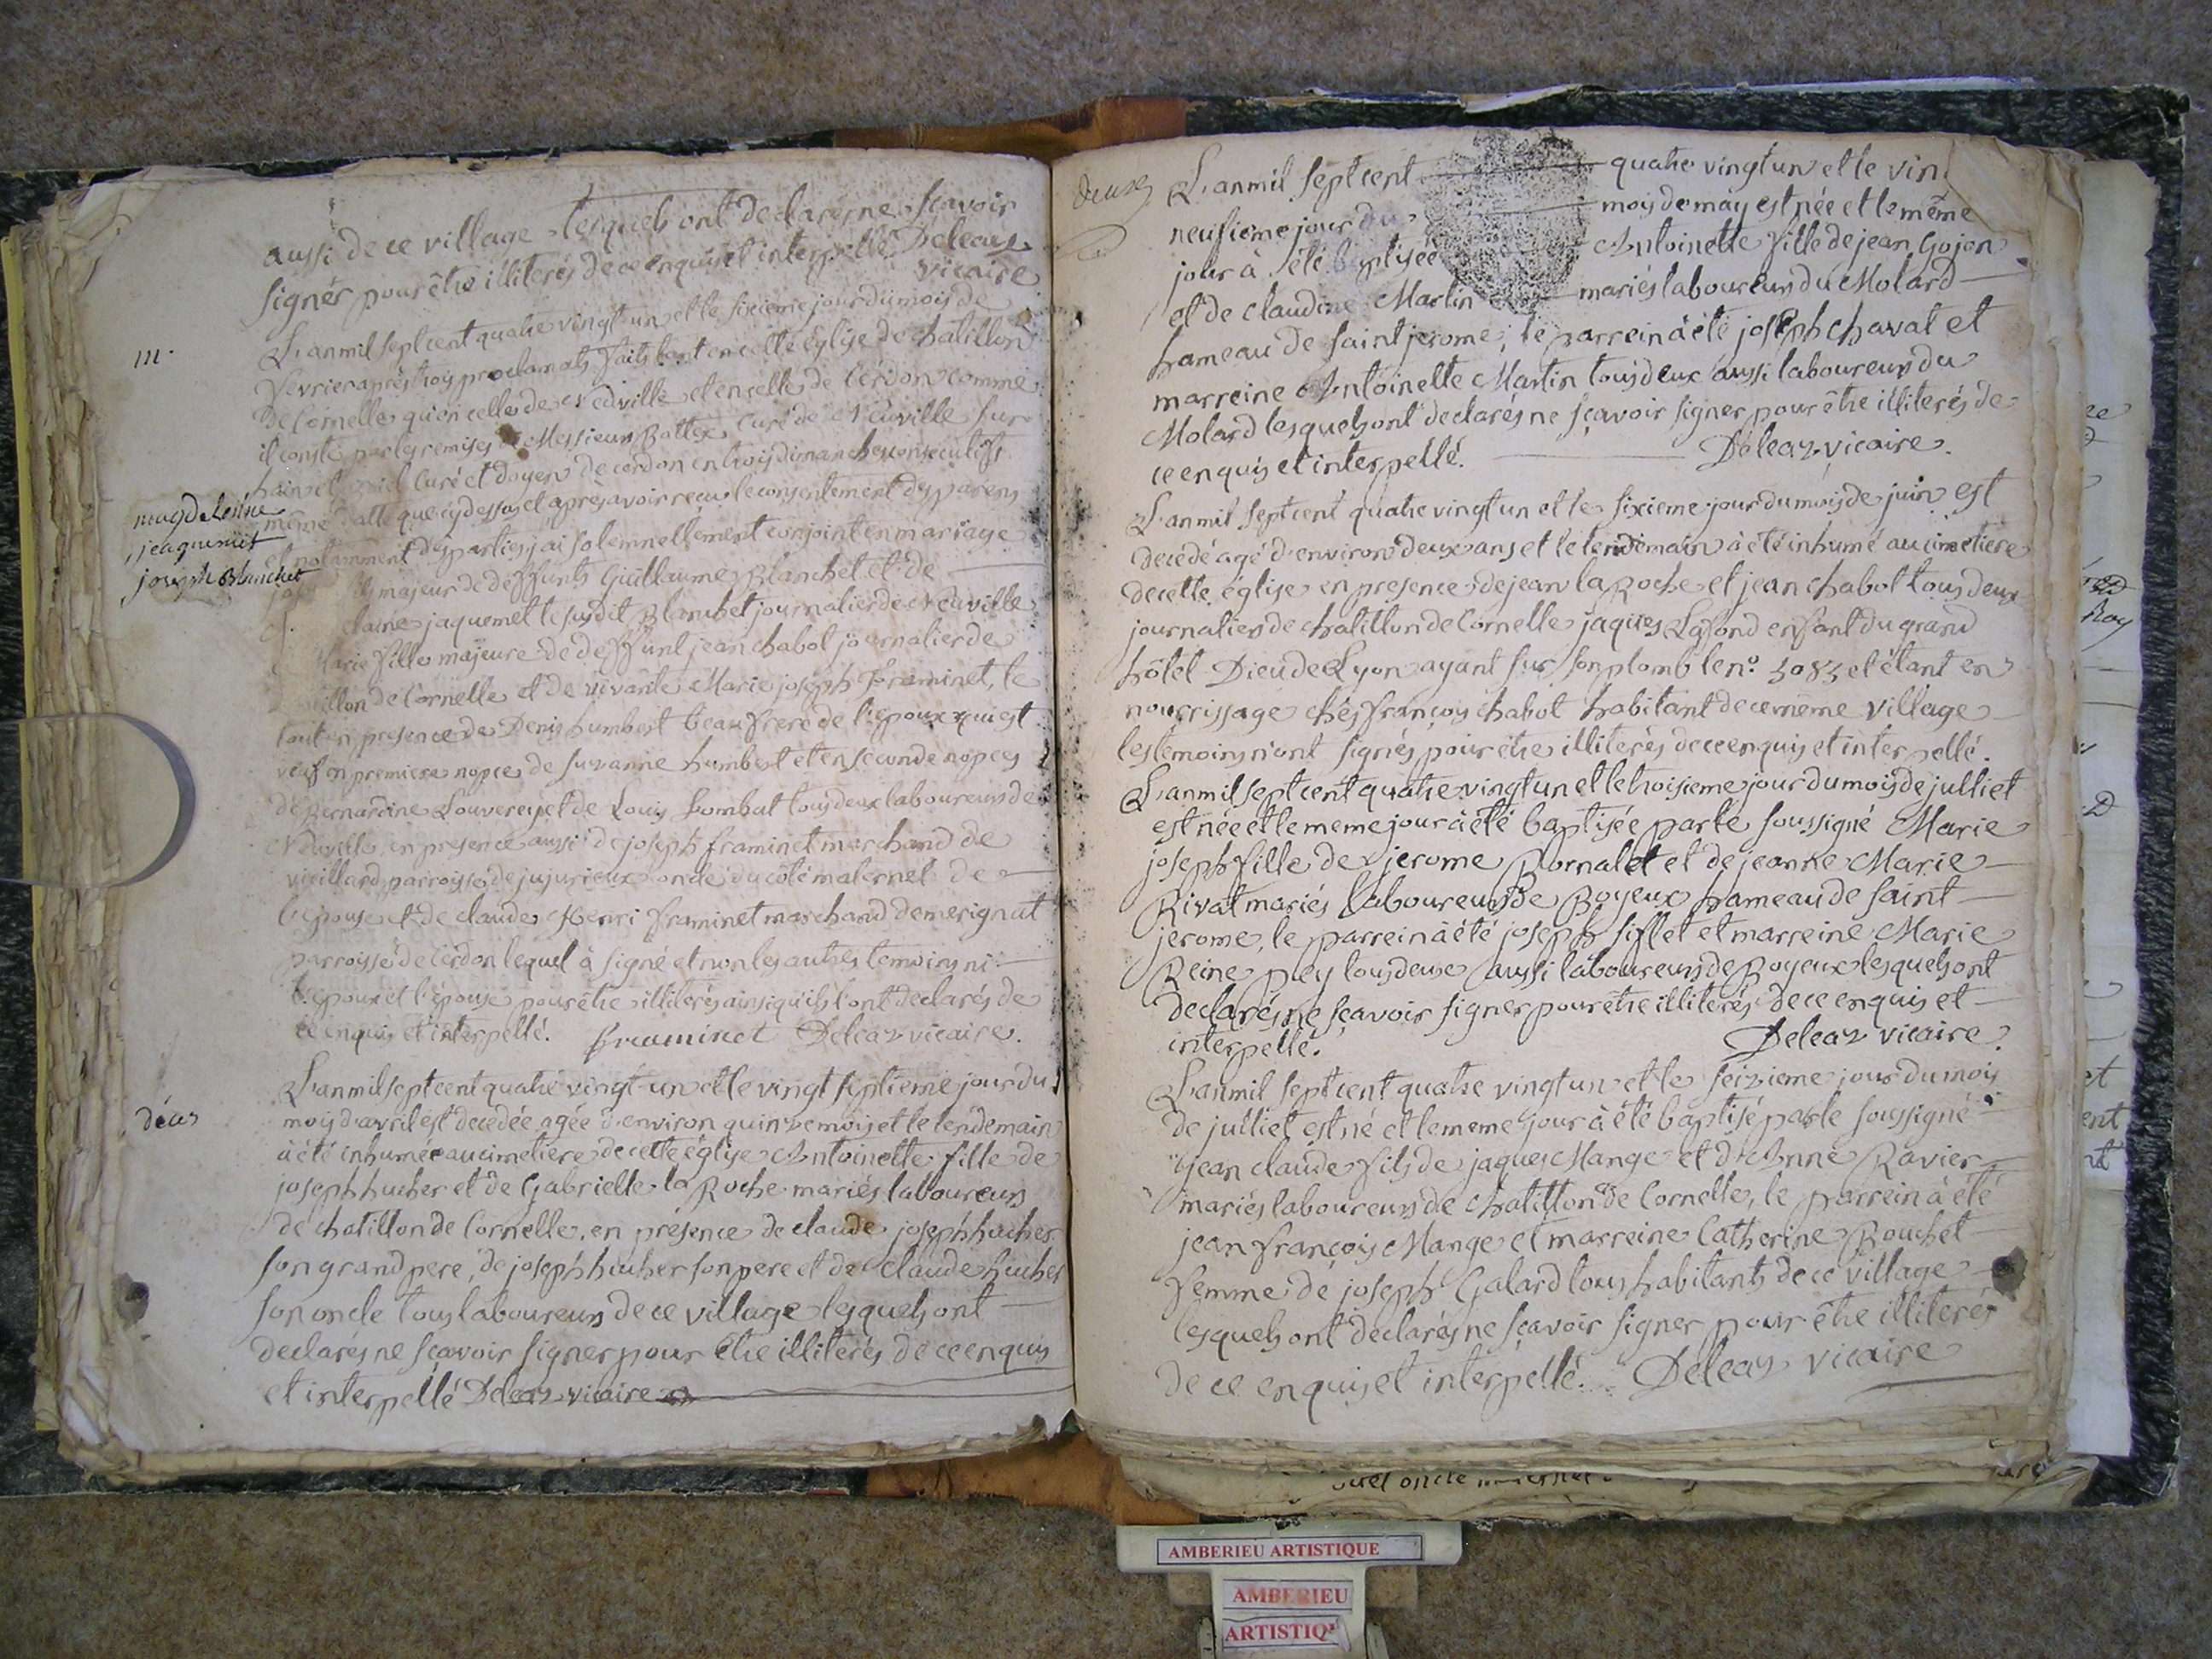 aussi de ce village lesquels ont declarés ne scavoir
signér pour être illiterés de ce enquis et interpellé Deleaz
vicaire
m.
L'an mil sept cent quatre vingt un et le sixieme jour du mois de
Fevrier après trois proclamats faits tant en cette église de chatillon
de Cornelle qu'en celle de Neuville et en celle de Cerdon comme
il conste par les remises Messieurs Bottex Curé de Neuville sur
hain et Curé et doyen de cerdon en trois dimanches consecutifs
même datte que cy dessus et après avoir reçu le consentement des parens
et notamment des parties j'ai solemnellement conjoint en mariage
magdeleine
jaquemet
joseph Blanchet
fils majeur de deffunts Guillaume Blanchet et de
claine jaquemet le susdit Blanchet journalier de Neuville
Marie fille majeure de deffunt jean chabot journalier de
chatillon de Cornelle et de vivante Marie joseph Framinet, le
tout en presence de Denis humbert beau frere de l'epoux qui est
veuf en premiere nopces de suzanne humbert et en seconde nopces
de Bernardine Louverey et de Louis bombat tous deux laboureurs de
Neuville, en presence aussi de joseph framinet marchand de
vieillard parroisse de jujurieux oncle du côté maternel de
l'epouse et de claude Henri framinet marchand de merignat
parroisse de Cerdon lequel à signé et non les autres temoins ni
l'epoux et l'epouse pour être illiterés ainsi qu'ils l'ont declarés de
ce enquis et interpellé. framinet Deleaz vicaire.
L'an mil sept cent quatre vingt un et le vingt septieme jour du
décès
mois d'avril est decedée agée d'environ quinze mois et le lendemain
à été inhumée au cimetiere de cette église Antoinette fille de
joseph hucher et de Gabrielle la Roche mariés laboureurs
de chatillon de Cornelle, en présence de claude joseph hucher
son grand pere, de joseph hucher son pere et de claude hucher
son oncle tous laboureurs de ce village lesquels ont
declarés ne sçavoir signer pour être illiterés de ce enquis
et interpellé Deleaz vicaire
L'an mil sept cent quatre vingt un et le vin
neufieme jour du mois de may est née et le même
jour à été baptisée Antoinette fille de jean Gojon
et de claudine Martin mariés laboureurs du Molard
hameau de saint jerome; le parrein à été joseph chavat et
marreine Antoinette Martin tous deux aussi laboureurs du
Molard lesquels ont declarés ne sçavoir signer pour être illiterés de
ce enquis et interpellé. Deleaz vicaire.
L'an mil sept cent quatre vingt un et le sixieme jour du mois de juin est
decédé agé d'environ deux ans et le lendemain à été inhumé au cimetiere
de cette église en presence de jean la Roche et jean chabot tous deux
journaliers de chatillon de Cornelle jaques Lafond enfant du grand
hôtel Dieu de Lyon ayant sur son plomb le n.° 3083 et étant en
nourrissage chés françois chabot habitant de ce même village
les temoins n'ont signés pour être illiterés de ce enquis et interpellé.
L'an mil sept cent quatre vingt un et le troisieme jour du mois de julliet
est née et le meme jour à été baptisée par le soussigné Marie
joseph fille de jerome Bornalet et de jeanne Marie
Rivat mariés laboureurs de Boyeux hameau de saint
jerome, le parrein à été joseph siflet et marreine Marie
Reine pey tous deux aussi laboureurs de Boyeux lesquels ont
declarés ne sçavoir signer pour être illiterés de ce enquis et
interpellé. Deleaz vicaire.
L'an mil sept cent quatre vingt un et le seizieme jour du mois
de julliet est né et le meme jour à été baptisé par le soussigné
jean claude fils de jaques Mange et d'Anne Ravier
mariés laboureurs de chatillon de Cornelle, le parrein à été
jean françois Mange et marreine Catherine Bouchet
femme de joseph Galard tous habitants de ce village
lesquels ont declarés ne sçavoir signer pour être illiterés
de ce enquis et interpellé. Deleaz vicaire
AMBERIEU ARTISTIQUE
AMBERIEU
ARTISTIQ